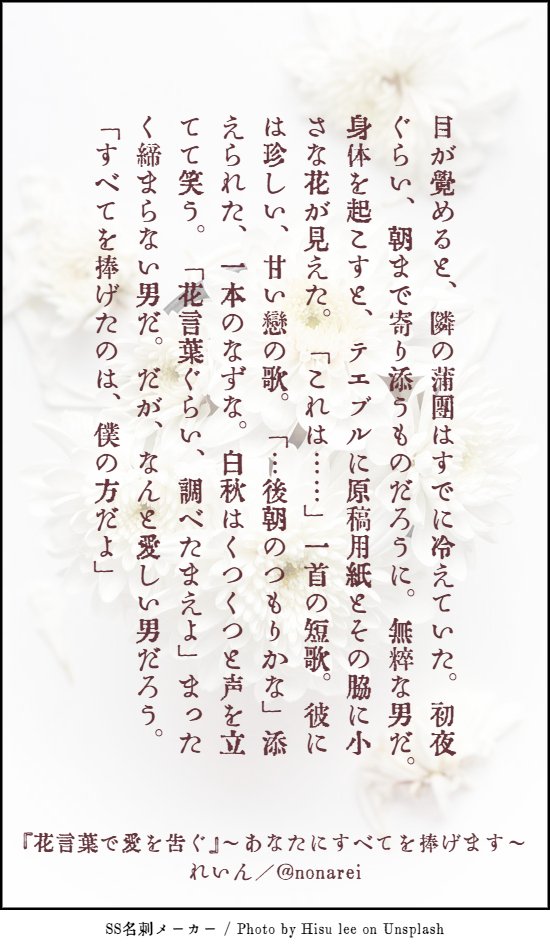 目が覺めると、隣の蒲團はすでに冷えていた。初夜
ぐらい、朝まで寄り添うものだろうに。無粋な男だ。
身体を起こすと、テエブルに原稿用紙とその脇に小
さな花が見えた。「これは……」一首の短歌。彼に
は珍しい、甘い戀の歌。「…後朝のつもりかな」添
えられた、一本のなずな。白秋はくつくつと声を立
てて笑う。「花言葉ぐらい、調べたまえよ」まった
く締まらない男だ。だが、なんと愛しい男だろう。
「すべてを捧げたのは、僕の方だよ」
『花言葉で愛を告ぐ』～あなたにすべてを捧げます～
れいん／@nonarei
SS名刺メーカー / Photo by Hisu lee on Unsplash